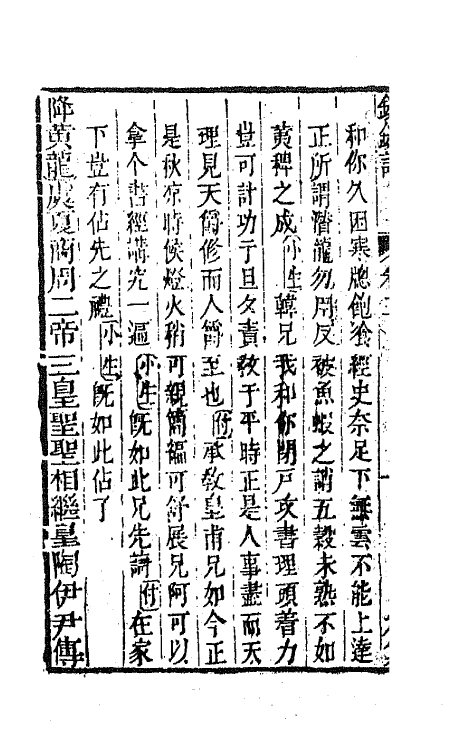 和你久困寒牕飽飡經史奈足下無雲不能上達
正所謂潛龍勿用反被魚蝦之誚五穀未熟不如
荑稗之成小生韓兄我和你閉戶攻書埋頭着力
豈可計功于旦夕責效于平時正是人事盡而天
理見天爵修而人爵至也付承教皇甫兄如今正
是秋凉時候燈火稍可親簡編可舒展兄阿可以
拿个書經講究一遍小生旣如此兄先請付在家
下豈有佔先之禮小生旣如此佔了
降黄龍虞夏商周二帝三皇聖聖相繼皇陶伊尹傳